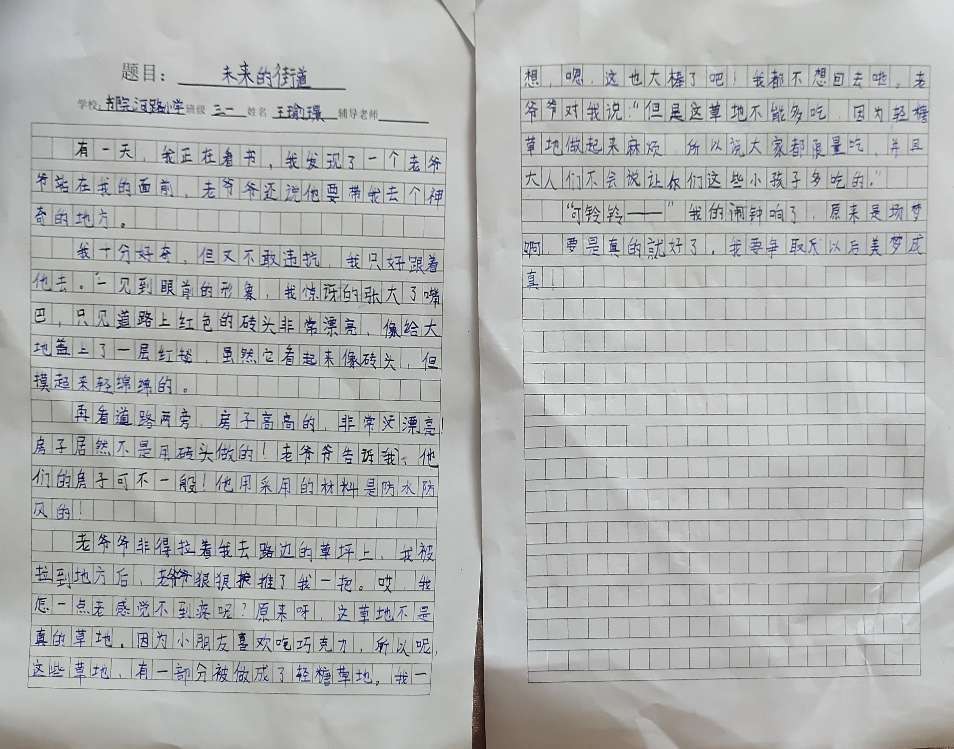 题目：未来的街道
学校：书院河路小学 班级 三一 姓名 王瑜璟 辅导老师
有一天，我正在看书，我发现了一个老爷
爷站在我的面前，老爷爷还说他要带我去个神
奇的地方。
我十分好奇，但又不敢违抗，我只好跟着
他去。一见到眼前的形象，我惊讶的张大了嘴
巴，只见道路上红色的砖头非常漂亮，像给大
地盖上了一层红毯，虽然它看起来像砖头，但
摸起来轻绵绵的。
再看道路两旁，房子高高的，非常漂亮！
房子居然不是用砖头做的！老爷爷告诉我，他
们的房子可不一般！他用采用的材料是防水防
风的！
老爷爷非得拉着我去路边的草坪上，我被
拉到地方后，老爷爷狠狠推了我一把。哎，我
怎一点老感觉不到疼呢？原来呀，这草地不是
真的草地。因为小朋友喜欢吃巧克力，所以呢，
这些草地，有一部分被做成了轻糖草地。我一
想，嗯，这也大棒了吧！我都不想回去啦。老
爷爷对我说：“但是这草地不能多吃，因为轻糖
草地做起来麻烦，所以说大家都限量吃，并且
大人们不会说让你们这些小孩子多吃的。”
“叮铃铃——”我的闹钟响了，原来是场梦
啊，要是真的就好了。我要争取以后美梦成
真！